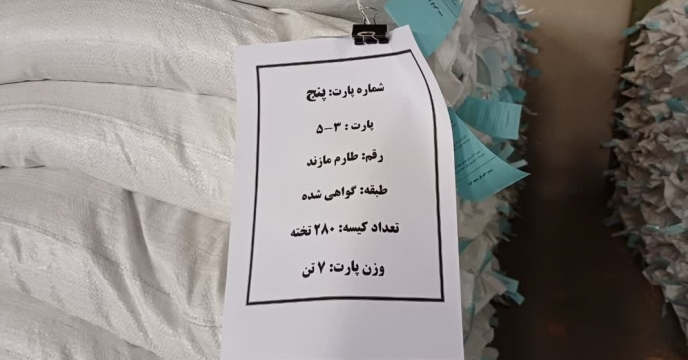 شماره پارت: پنج
پارت : ۳-۵
رقم: طارم مازند
طبقه: گواهی شده
تعداد کیسه: ۲۸۰ تخته
وزن پارت: ۷ تن